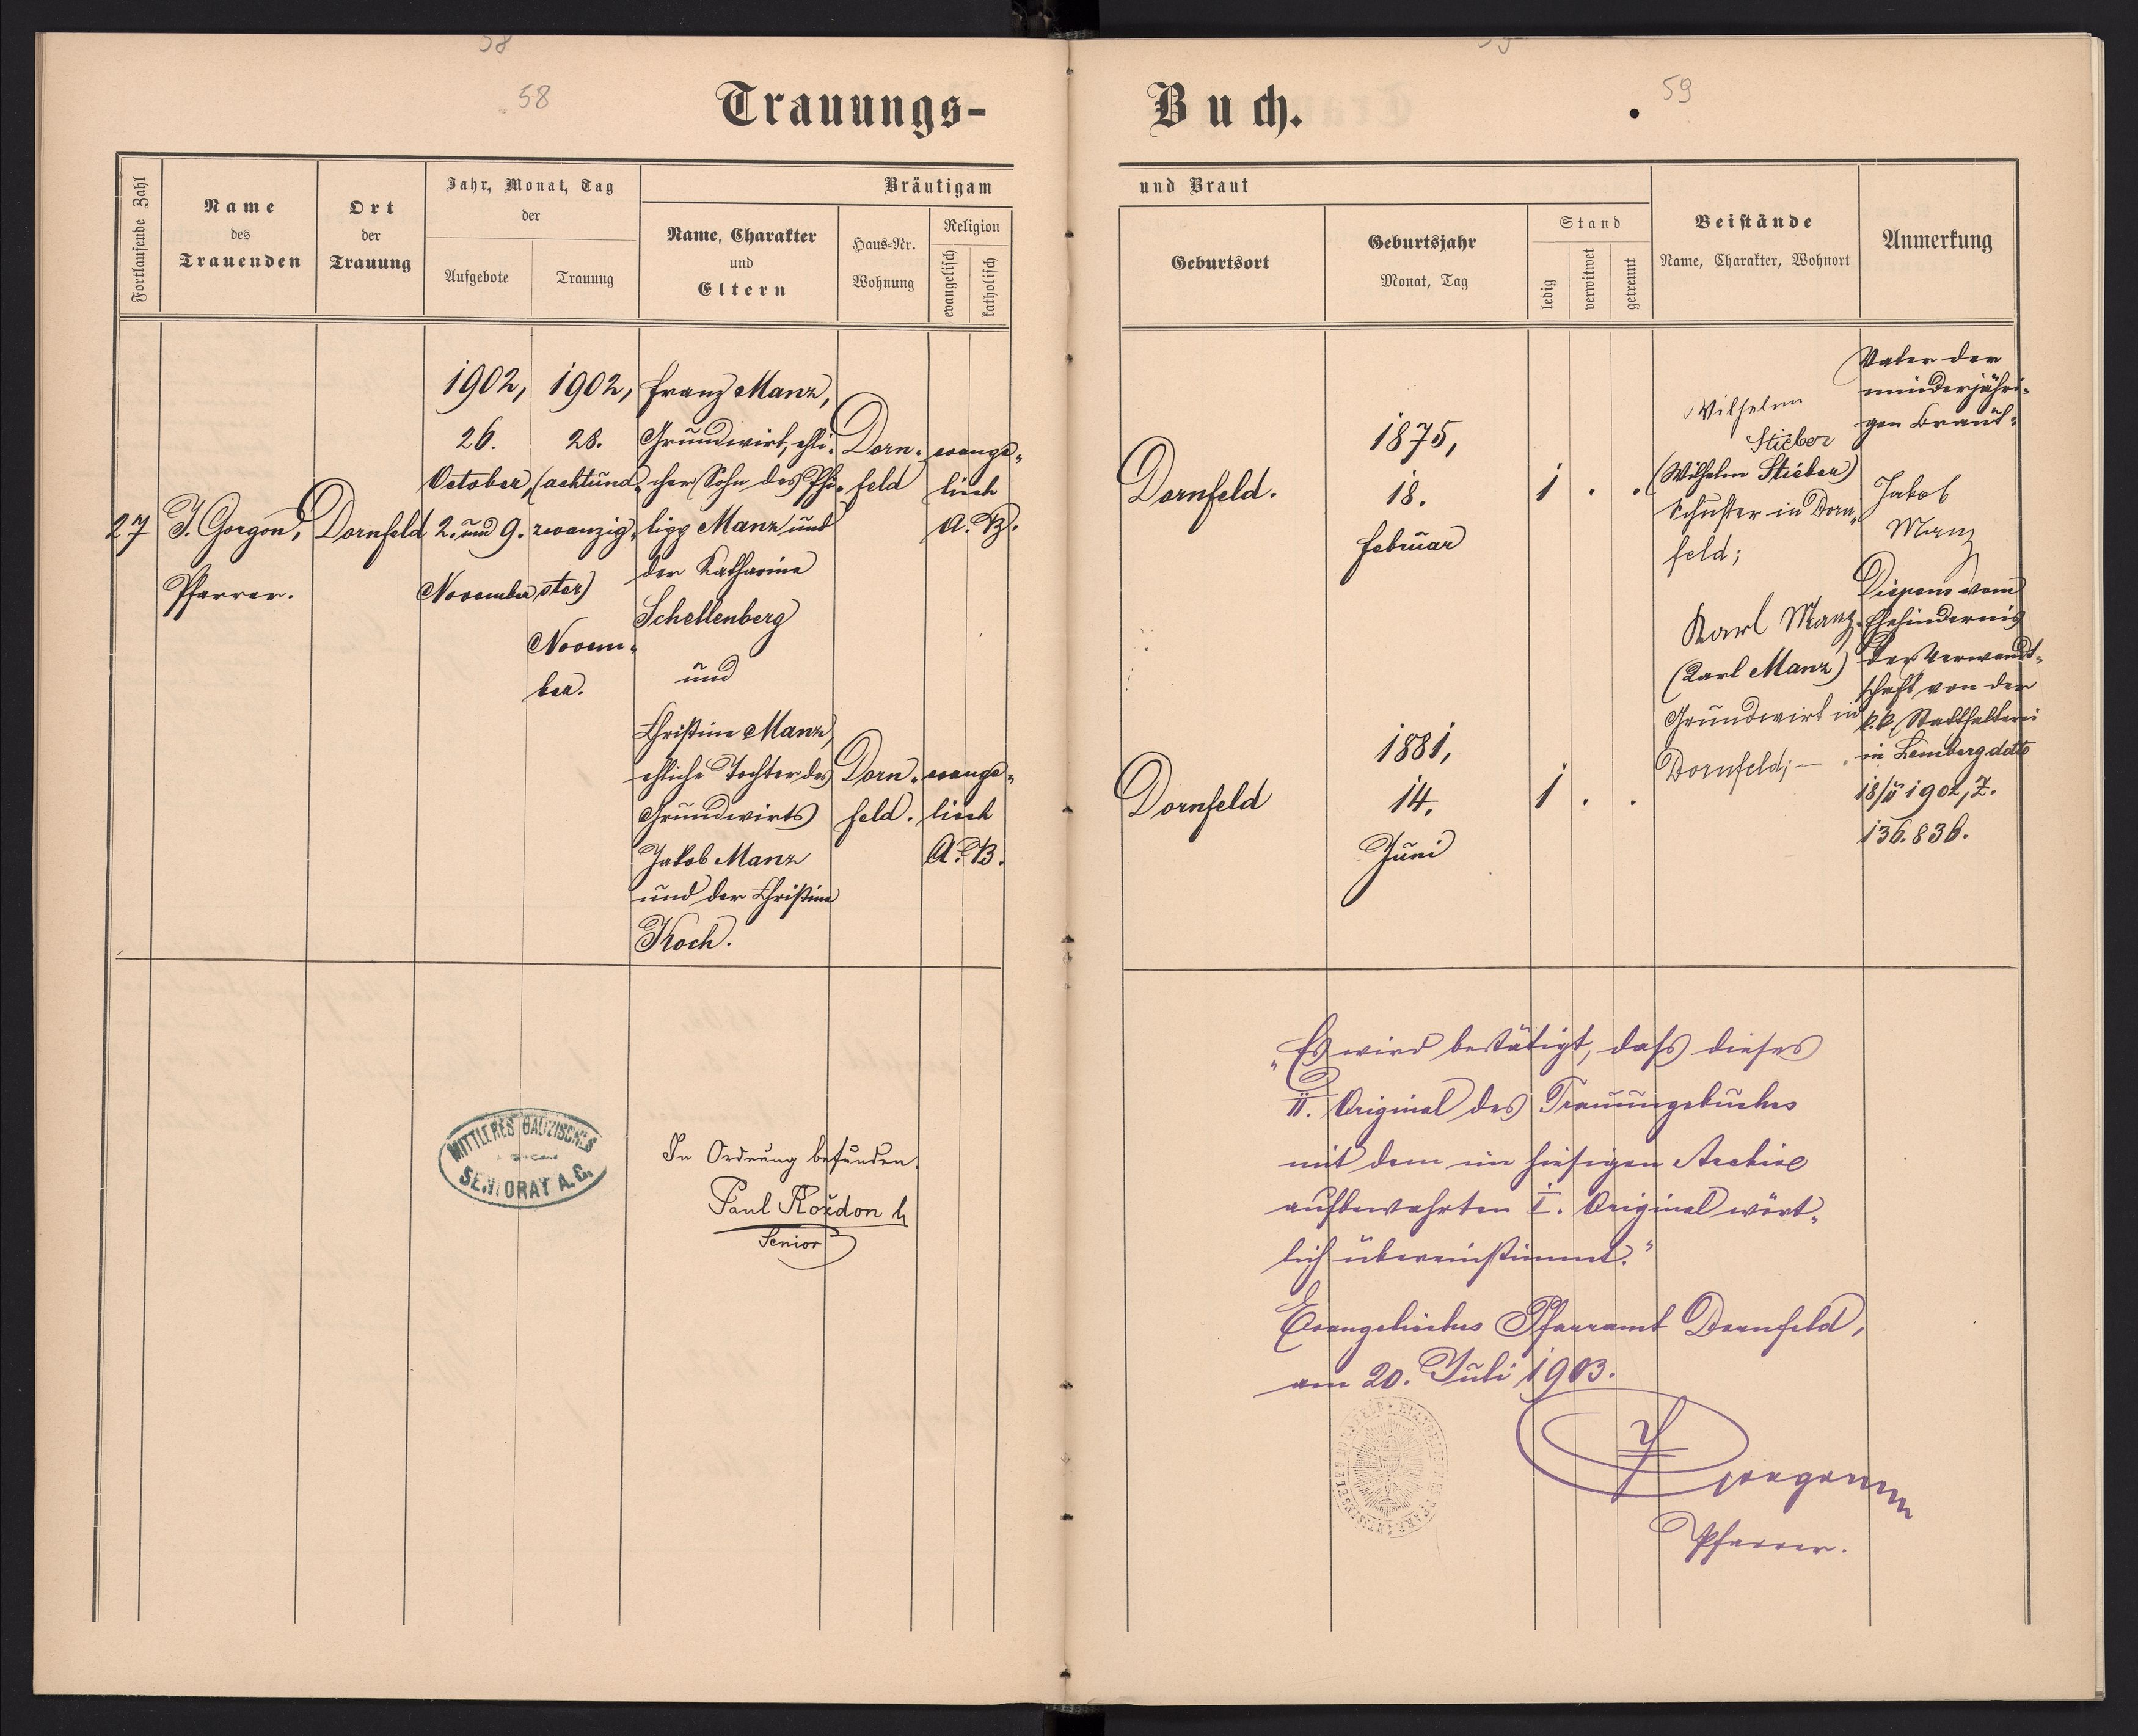 58
58
Trauungs-
Fortlaufende Zahl
Name
des
Trauenden
Ort
der
Trauung
Jahr, Monat, Tag
der
Aufgebote
Trauung
Bräutigam
Name, Charakter
und
Eltern
Haus-Nr.
Wohnung
Religion
evangelisch
katholisch
27
J. Gorgon,
Pfarrer.
Dornfeld
1902,
26.
October,
2. und 9.
November
1902,
28.
(achtund-
zwanzig-
ster)
Novem-
ber.
Franz Manz,
Grundwirt, ehli-
cher Sohn des Phi-
lipp Manz und
der Katharina
Schellenberg
und
Christine Manz,
ehliche Tochter des
Grundwirts
Jakob Manz
und der Christine
Koch.
Dorn-
feld
Dorn-
feld.
evange-
lisch
A. B.
evange-
lisch
A. B.
MITTLERES GALIZISCHES
SENIORAT A. C.
In Ordnung befunden.
Paul Roydon
Senior
59
Buch.
und Braut
Geburtsort
Geburtsjahr
Monat, Tag
Stand
ledig
verwitwet
getrennt
Beistände
Name, Charakter, Wohnort
Anmerkung
Dornfeld.
1875,
18.
Februar
1 . .
Dornfeld
1881,
14.
Juni
1 . .
Wilhelm
Stieber
(Wilhelm Stieber)
Schuster in Dorn-
feld;
Karl Manz
(Karl Manz)
Grundwirt in
Dornfeld; —
Vater der
minderjähri-
gen Braut:
Jakob
Manz
Dispens vom
Ehehindernis
der Verwandt-
schaft von der
k.k. Statthalterei
in Lemberg ddto
1902, Z.
136.836.
„Es wird bestätigt, daß dieses
II. Original des Trauungsbuches
mit dem im hiesigen Archive
aufbewahrten I. Original wört-
lich übereinstimmt."
Evangelisches Pfarramt Dornfeld,
am 20. Juli 1903.
J Gorgon
Pfarrer.